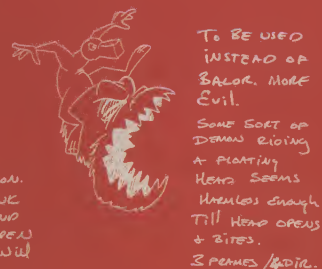 To BE USED
INSTEAD OF
BALOR. MORE
EVIL.
SOME SORT OF
DEMON RIDING
A FLOATING
HEAD SEEMS
HARMLESS ENOUGH
TILL HEAD OPENS
& BITES.
3 FRAMES /
DIR.
ON.
NK
UP
PEN
WILL